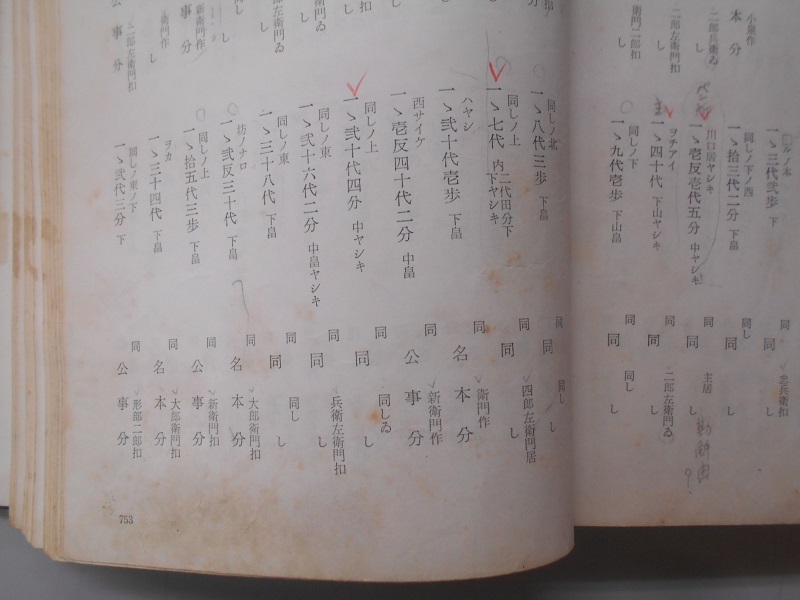 小泉作
本分
二郎兵衛ゐ
し
二郎左衛門扣
し
衛門二郎扣
し
ルノ本
一ゝ三代弐歩 下
同しノ下ノ西
一ゝ拾三代二分 下畠
川口居ヤシキ
一ゝ壱反壱代五分 中ヤシキ
ヲチアイ
一ゝ四十代 下山ヤシキ
同しノ下
一ゝ九代壱歩 下山畠
同
同
忠兵衛扣
し
同し
同
し
同
同
主居
し
同
同
二郎左衛門ゐ
し
同
同
同し
し
し
衛門作
し
新衛門作
公事分
二郎左衛門扣
同しノ北
一ゝ八代三歩 下畠
同しノ上
一ゝ七代 内二代田分下 下ヤシキ
ハヤシ
一ゝ弐十代壱歩 下畠
西サイケ
一ゝ壱反四十代二分 中畠
同しノ上
一ゝ弐十代四分 中ヤシキ
同しノ東
一ゝ弐十六代二分 中畠ヤシキ
同しノ東
一ゝ三十八代 下畠
坊ノナロ
一ゝ弐反三十代 下畠
同しノ上
一ゝ拾五代三歩 下畠
ヲカ
一ゝ三十四代 下畠
同しノ東ノ下
一ゝ弐代三分 下
同
同し
同
し
同
四郎左衛門居
同
し
同
衛門作
名本分
同
新衛門作
公事分
同
同しゐ
同
し
同
兵衛左衛門扣
同
し
同
同し
同
し
同
大郎衛門扣
名本分
同
新衛門扣
公事分
同
大郎衛門扣
名本分
同
形部二郎扣
公事分
753